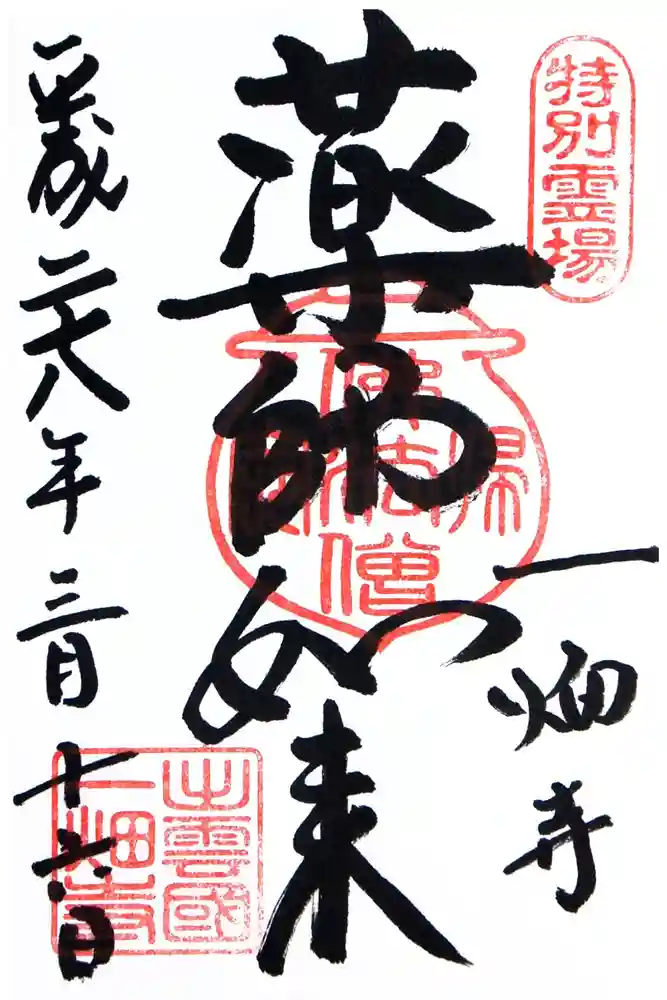 特別霊場
一畑寺
薬師如来
帰
佛法僧
平成二十八年三月十六日
出雲國
一畑寺